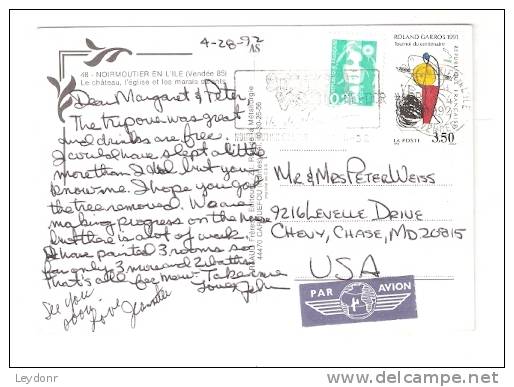 4-28-92
AS
48 - NOIRMOUTIER EN L'ILE (Vendée 85)
Le château, l'église et les marais salants
Dear Margaret & Peter,
The trip over was great
and drinks are free.
I could have slept a little
more than I did but you
know me. I hope you got
the tree removed. We are
making progress on the house
but there is a lot of work
I have painted 3 rooms so
far only 3 more and 2 baths
That's all for now. Take care
Love, John
See you
soon
Love Jeannette
44470 CARQUEFOU
0,20
ROLAND GARROS 1991
Tournoi du centenaire
REPUBLIQUE FRANÇAISE
LA POSTE
3,50
Mr & Mrs Peter Weiss
9216 Levelle Drive
Chevy, Chase, MD 20815
USA
PAR AVION
Leydonr
delcampe.net